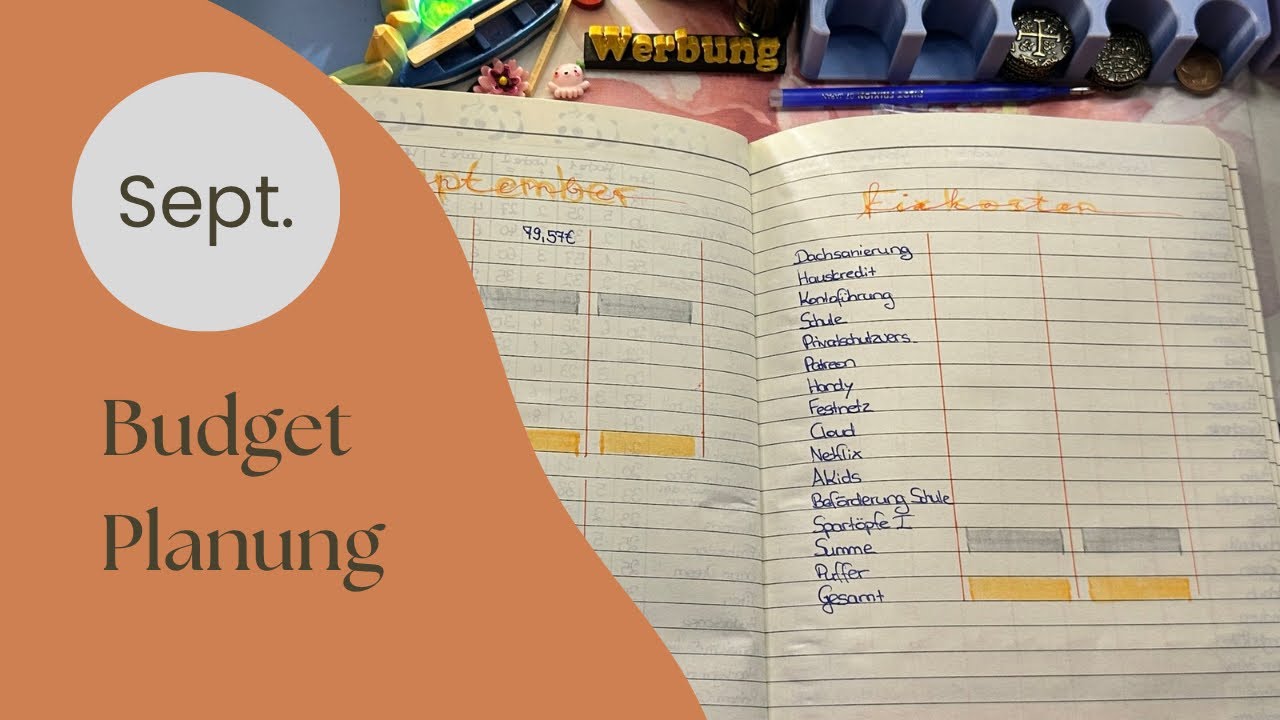 Sept.
Budget
Planung
Werbung
ptember
79,57€
Fixkosten
Dachsanierung
Hauskredit
Kontoführung
Schule
Privatschutzvers.
Patreon
Handy
Festnetz
Cloud
Netflix
AKids
Beförderung Schule
Spartöpfe I
Summe
Puffer
Gesamt